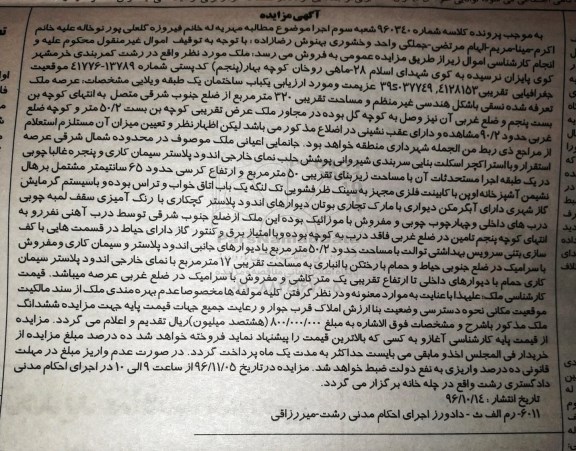 آگهی مزایده
به موجب پرونده کلاسه شماره ۹۶۰۳۴۰ شعبه سوم اجرا موضوع مطالبه مهریه له خانم فیروزه کلعلی پور نوخاله علیه خانم
اکرم-مینا-مریم-الهام مرتضی-جملگی واحد وخشوری بینوش رضازاده، با توجه به توقیف اموال غیر منقول محکوم علیه و
انجام کارشناسی اموال زیر از طریق مزایده عمومی به فروش می رسد، ملک مورد نظر واقع در رشت کمربندی خرمشهر
کوی پایزان نرسیده به کوی شهدای اسلام ۲۸-ماهی روخان کوچه بهار(پنجم) کدپستی شماره ۱۳۷۸۹-۴۱۷۷۶ موقعیت
جغرافیایی تقریبی ۴۱۲۸۱۵۳،۰۳۷۷۴۹s۳۹ عزیمت ومورد ارزیابی یکباب ساختمان یک طبقه ویلایی مشخصات: عرصه ملک
تعرفه شده نسقی باشکل هندسی غیرمنظم و مساحت تقریبی ۳۲۰ مترمربع از ضلع جنوب شرقی متصل به انتهای کوچه بن
بست پنجم و ضلع غربی آن نیز وصل به کوچه گل بوده در مجاور ملک عرض تقریبی کوچه بن بست ۵۰/۲ متر و کوچه ضلع
غربی حدود ۹۰/۲ مشاهده و دارای عقب نشینی در اضلاع مذکور می باشد لیکن اظهار نظر و تعیین میزان آن مستلزم استعلام
از مراجع ذی ربط من الجمله شهرداری منطقه خواهد بود. جانمایی اعیانی ملک موصوف در محدوده شمال شرقی عرصه
استقرار وبا استراکچر اسکلت بنایی سربندی شیروانی پوشش حلب نمای خارجی اندود پلاستر سیمان کاری و پنجره غالبا چوبی
در یک طبقه اجرا مستحدثات آن با مساحت زیربنای تقریبی ۵۰ مترمربع و ارتفاع کرسی حدود ۶۵ سانتیمتر مشتمل بر هال
نشیمن آشپزخانه اوپن با کابینت فلزی مجهز به سینک ظرفشویی تک لنگه یک باب اتاق خواب و تراس بوده و باسیستم گرمایش
گاز شهری دارای آبگرمکن دیواری با مارک تجاری بوتان دیوارهای اندود پلاستر گچکاری با رنگ آمیزی سقف لمبه چوبی
درب های داخلی وچهارچوب چوبی و مفروش با موزائیک بوده این ملک از ضلع جنوب شرقی توسط درب آهنی نفررو به
انتهای کوچه پنجم تامین در ضلع غربی فاقد درب به کوچه بوده و با امتیاز برق و کنتور گاز دارای حیاط در قسمت هایی با کف
سازی بتنی سرویس بهداشتی توالت با مساحت حدود ۵۰/۲ متر مربع با دیوارهای جانبی اندود پلاستر و سیمان کاری ومفروش
با سرامیک در ضلع جنوبی حیاط و حمام با رختکن با انباری به مساحت تقریبی ۱۷ مترمربع با نمای خارجی اندود پلاستر سیمان
کاری حمام با دیوارهای داخلی تا ارتفاع تقریبی یک متر کاشی و مفروش با سرامیک در ضلع غربی عرصه میباشد. قیمت
کارشناسی ملک: علیهذا با عنایت به موارد معنونه ودر نظر گرفتن کلیه مولفه ها مخصوصا عدم بهره مندی ملک از سند مالکیت
موقعیت مکانی نحوه دسترسی وضعیت بنا ارزش املاک قرب جوار و رعایت جمیع جهات قیمت پایه جهت مزایده ششدانگ
ملک مذکور باشرح و مشخصات فوق الاشاره به مبلغ ۸۰۰/۰۰۰/۰۰۰ (هشتصد میلیون) ریال تقدیم و اعلام می گردد. مزایده
از قیمت پایه کارشناسی آغاز و به کسی که بالاترین قیمت را پیشنهاد نماید فروخته خواهد شد ده درصد مبلغ مزایده از
خریدار فی المجلس اخذو مابقی می بایست حداکثر به مدت یک ماه پرداخت گردد. در صورت عدم واریز مبلغ در مهلت
قانونی ده درصد واریزی به نفع دولت ضبط خواهد شد. مزایده در تاریخ ۹۶/۱۱/۰۵ از ساعت ۹ الی ۱۰ در اجرای احکام مدنی
دادگستری رشت واقع در چله خانه برگزار می گردد.
تاریخ انتشار : ۹۶/۱۰/۱۴
۶۰۱۱- رم الف ث - دادورز اجرای احکام مدنی رشت-میررزاقی